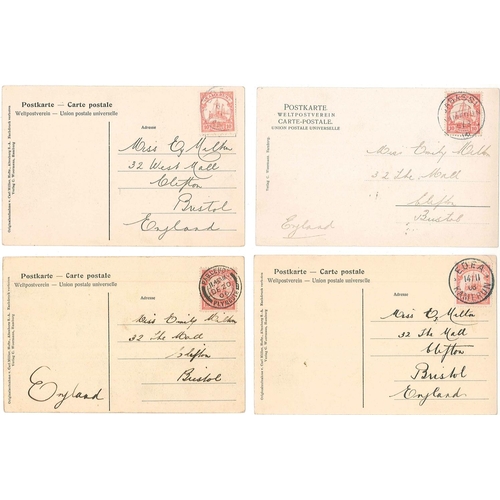 Postkarte — Carte postale
Weltpostverein — Union postale universelle
Adresse
Miss E. Milton
32 West Mall
Clifton
Bristol
England
POSTKARTE
WELTPOSTVEREIN
CARTE-POSTALE.
UNION POSTALE UNIVERSELLE
Miss Emily Milton
32 The Mall
Clifton
Bristol
England
Postkarte — Carte postale
Weltpostverein — Union postale universelle
Adresse
Miss Emily Milton
32 The Mall
Clifton
Bristol
England
Postkarte — Carte postale
Weltpostverein — Union postale universelle
Adresse
EDEA
14/11
06
KAMERUN
Miss E. Milton
32 The Mall
Clifton
Bristol
England